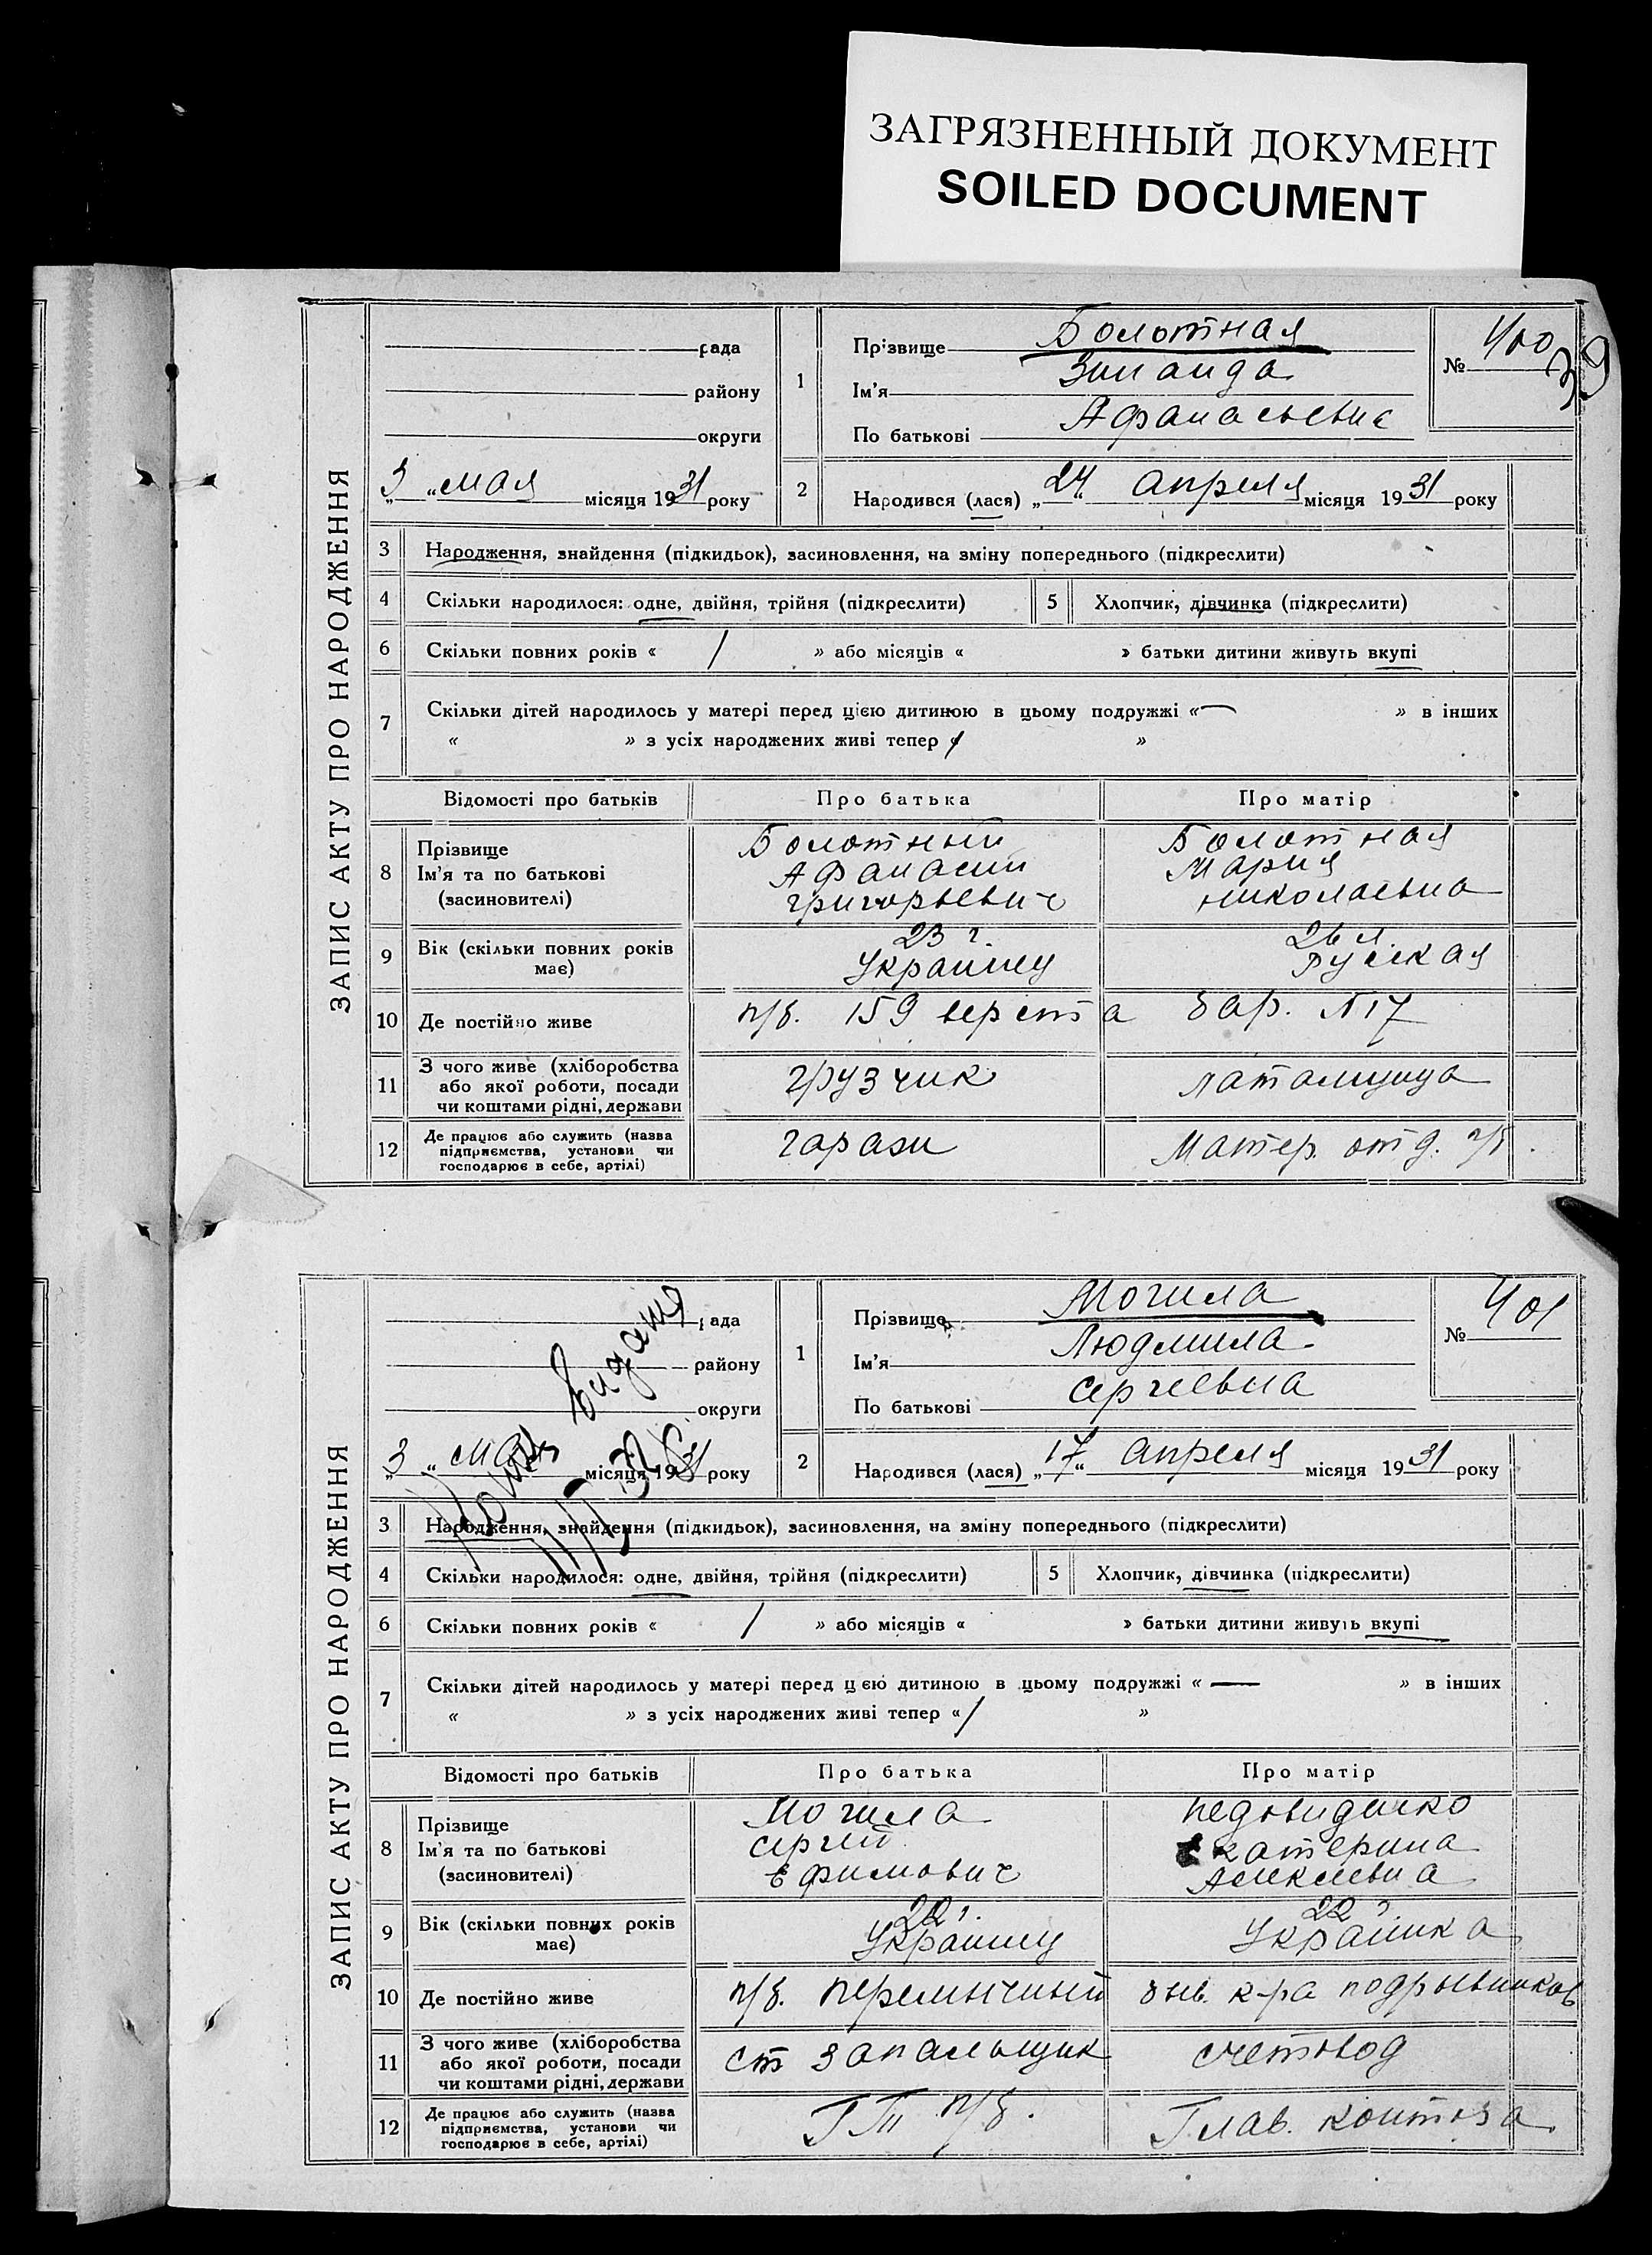 ЗАГРЯЗНЕННЫЙ ДОКУМЕНТ
SOILED DOCUMENT
39
ЗАПИС АКТУ ПРО НАРОДЖЕННЯ
рада
району
округи
„3„ мая місяця 1931 року
1
Прізвище Болотная
Ім'я Зинаида
По батькові Афанасьевна
№ 400
2 Народився (лася) „24„ апреля місяця 1931 року
3 Народження, знайдення (підкидьок), засиновлення, на зміну попереднього (підкреслити)
4 Скільки народилося: одне, двійня, трійня (підкреслити) 5 Хлопчик, дівчинка (підкреслити)
6 Скільки повних років « / » або місяців « » батьки дитини живуть вкупі
7 Скільки дітей народилось у матері перед цією дитиною в цьому подружжі «— » в інших
« » з усіх народжених живі тепер «/ »
Відомості про батьків Про батька Про матір
8 Прізвище Болотный Болотная
Ім'я та по батькові Афанасий Мария
(засиновителі) Григорьевич Николаевна
9 Вік (скільки повних років має) 23 г. 26 л.
Украинец Русская
10 Де постійно живе п/б. 159 верста бар. №17
11 З чого живе (хліборобства або якої роботи, посади чи коштами рідні, держави грузчик
12 Де працює або служить (назва підприємства, установи чи господарює в себе, артілі) гараж Матер. отд. п/б.
ЗАПИС АКТУ ПРО НАРОДЖЕННЯ
рада
району
округи
„3„ мая місяця 1931 року
видана
1
Прізвище Могила
Ім'я Людмила
По батькові Сергеевна
№ 401
2 Народився (лася) „17„ апреля місяця 1931 року
3 Народження, знайдення (підкидьок), засиновлення, на зміну попереднього (підкреслити)
4 Скільки народилося: одне, двійня, трійня (підкреслити) 5 Хлопчик, дівчинка (підкреслити)
6 Скільки повних років « / » або місяців « » батьки дитини живуть вкупі
7 Скільки дітей народилось у матері перед цією дитиною в цьому подружжі «— » в інших
« » з усіх народжених живі тепер «/ »
Відомості про батьків Про батька Про матір
8 Прізвище Могила
Ім'я та по батькові Сергей Екатерина
(засиновителі) Ефимович Алексеевна
9 Вік (скільки повних років має) 22 г. 22 г.
Украинец Украинка
10 Де постійно живе п/б. к-ра подрывников
11 З чого живе (хліборобства або якої роботи, посади чи коштами рідні, держави ст запальщик счетовод
12 Де працює або служить (назва підприємства, установи чи господарює в себе, артілі) п/б. Глав. контора